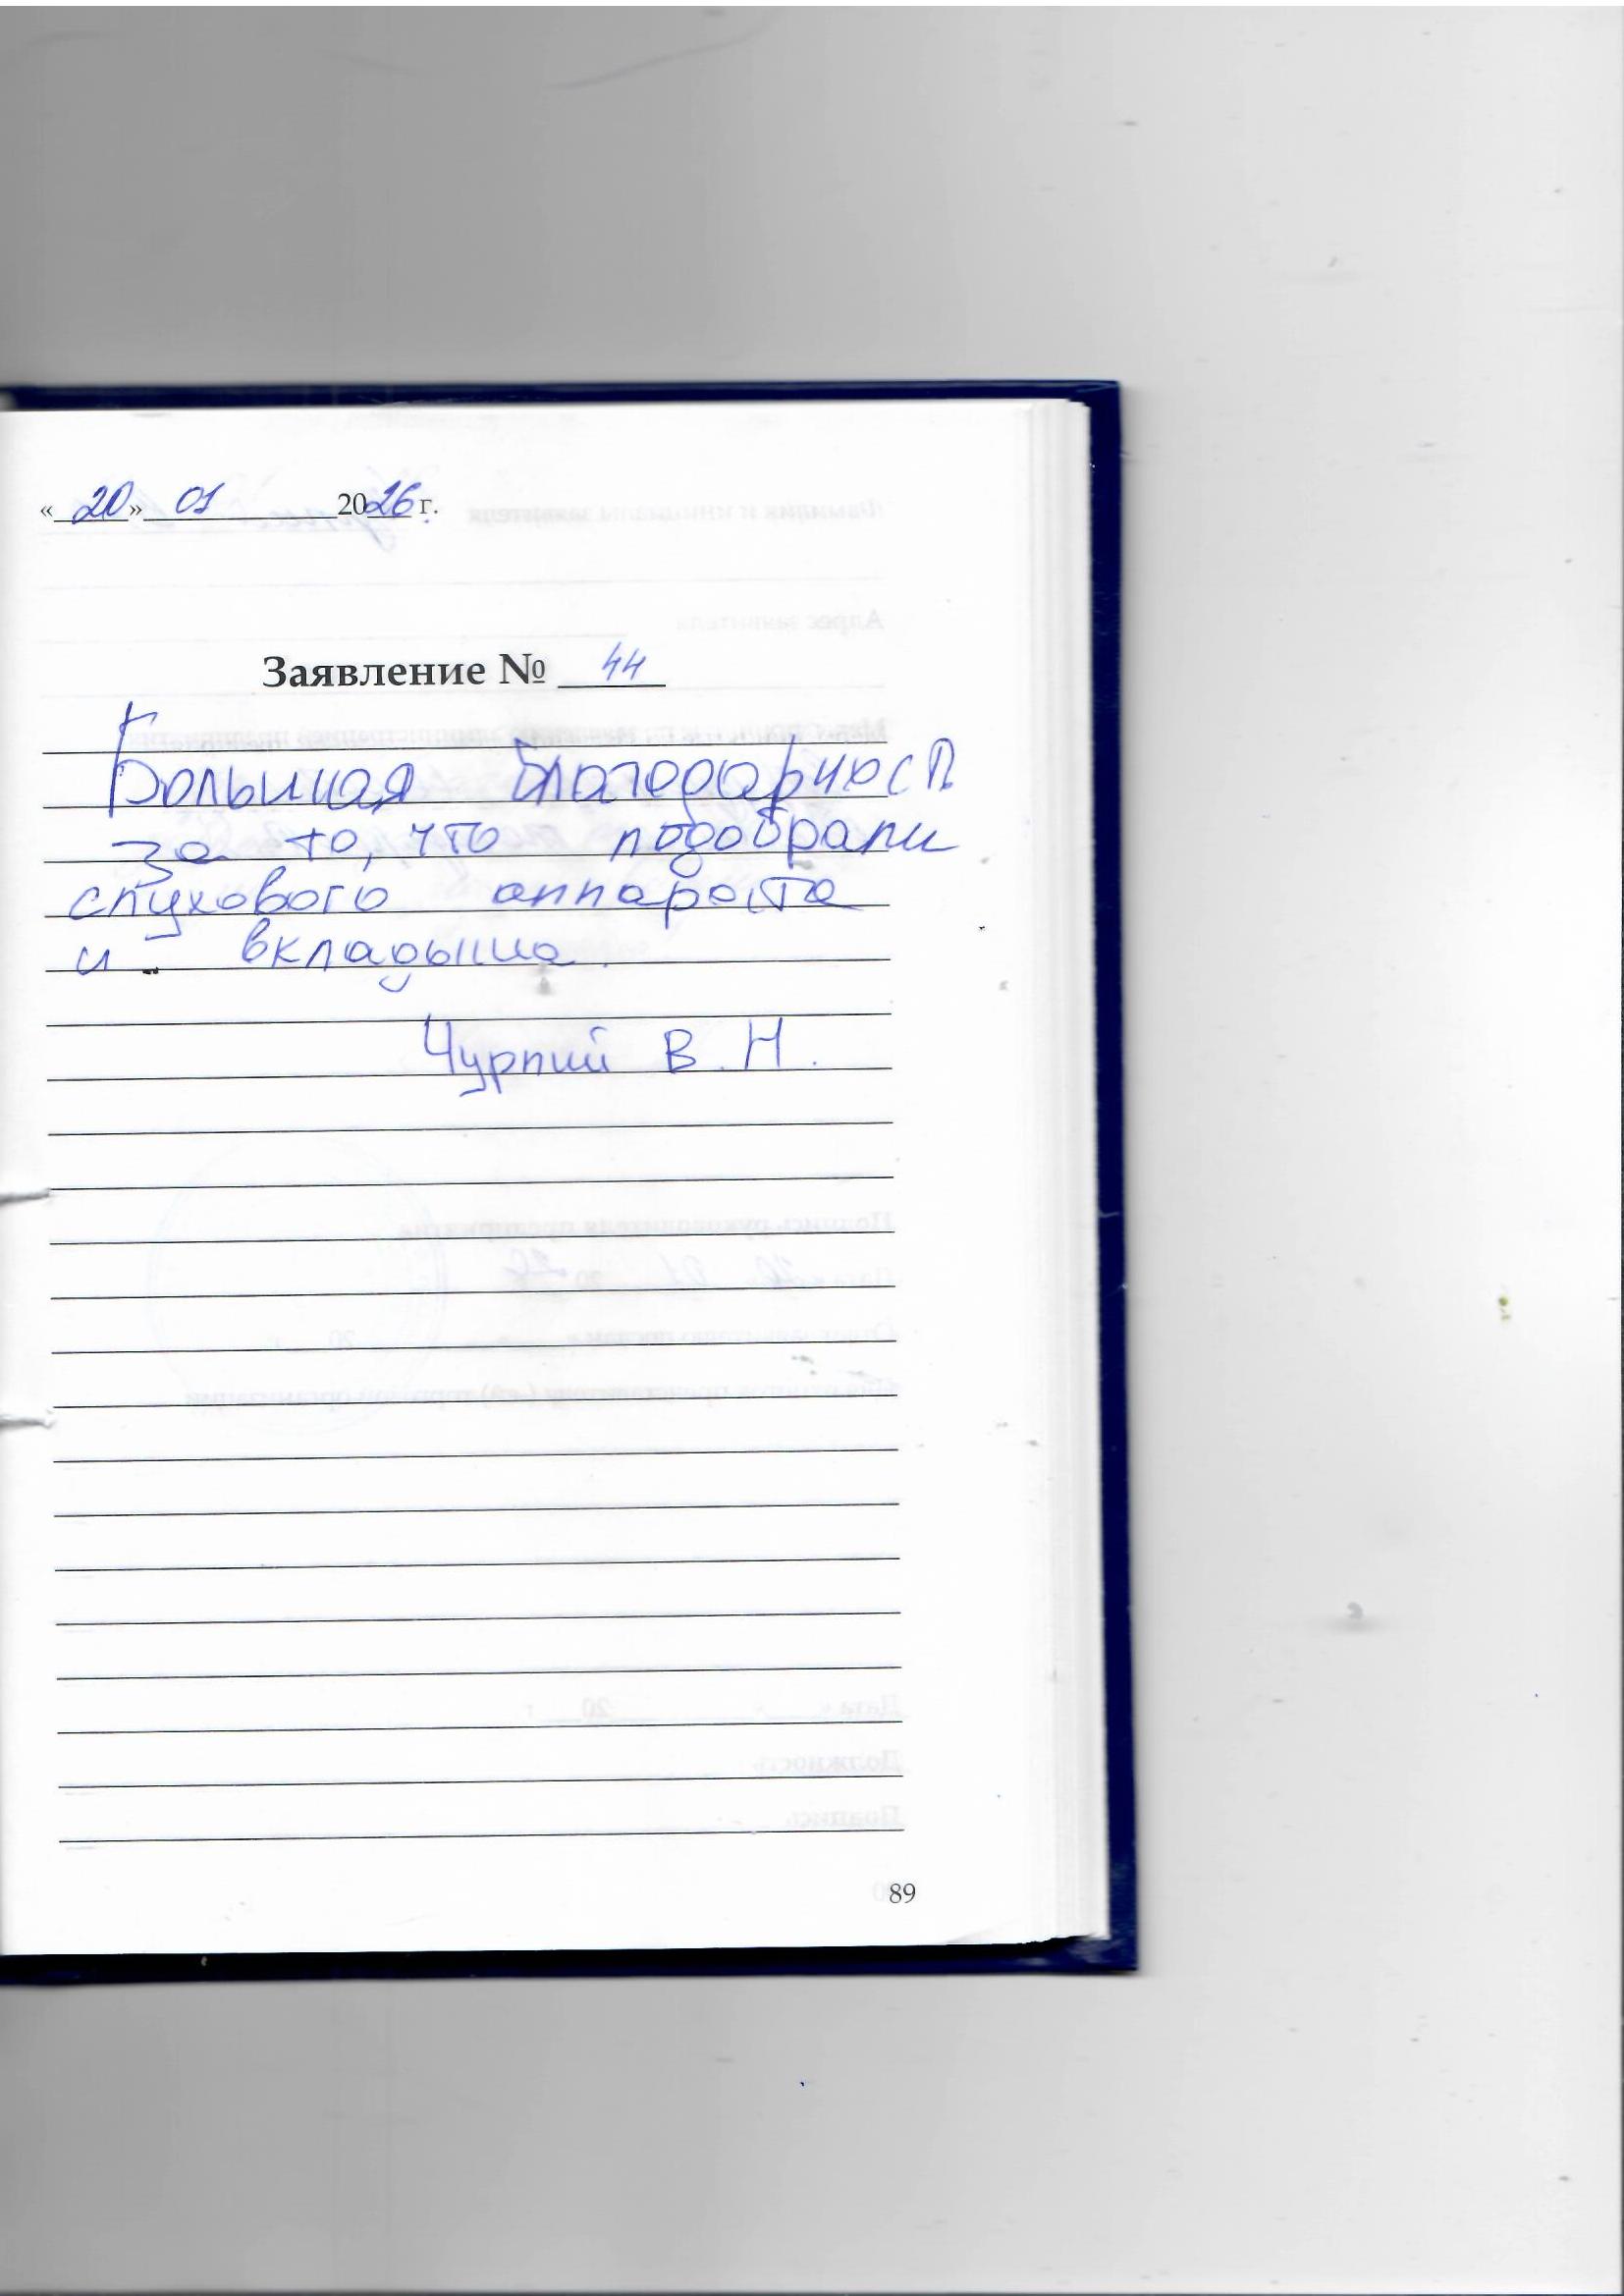 «20» 01 2026 г.
Заявление № 44
Большая благодарност
за то, что подобрали
слухового аппарата
и вкладыша.
Чурпий В.Н.
89